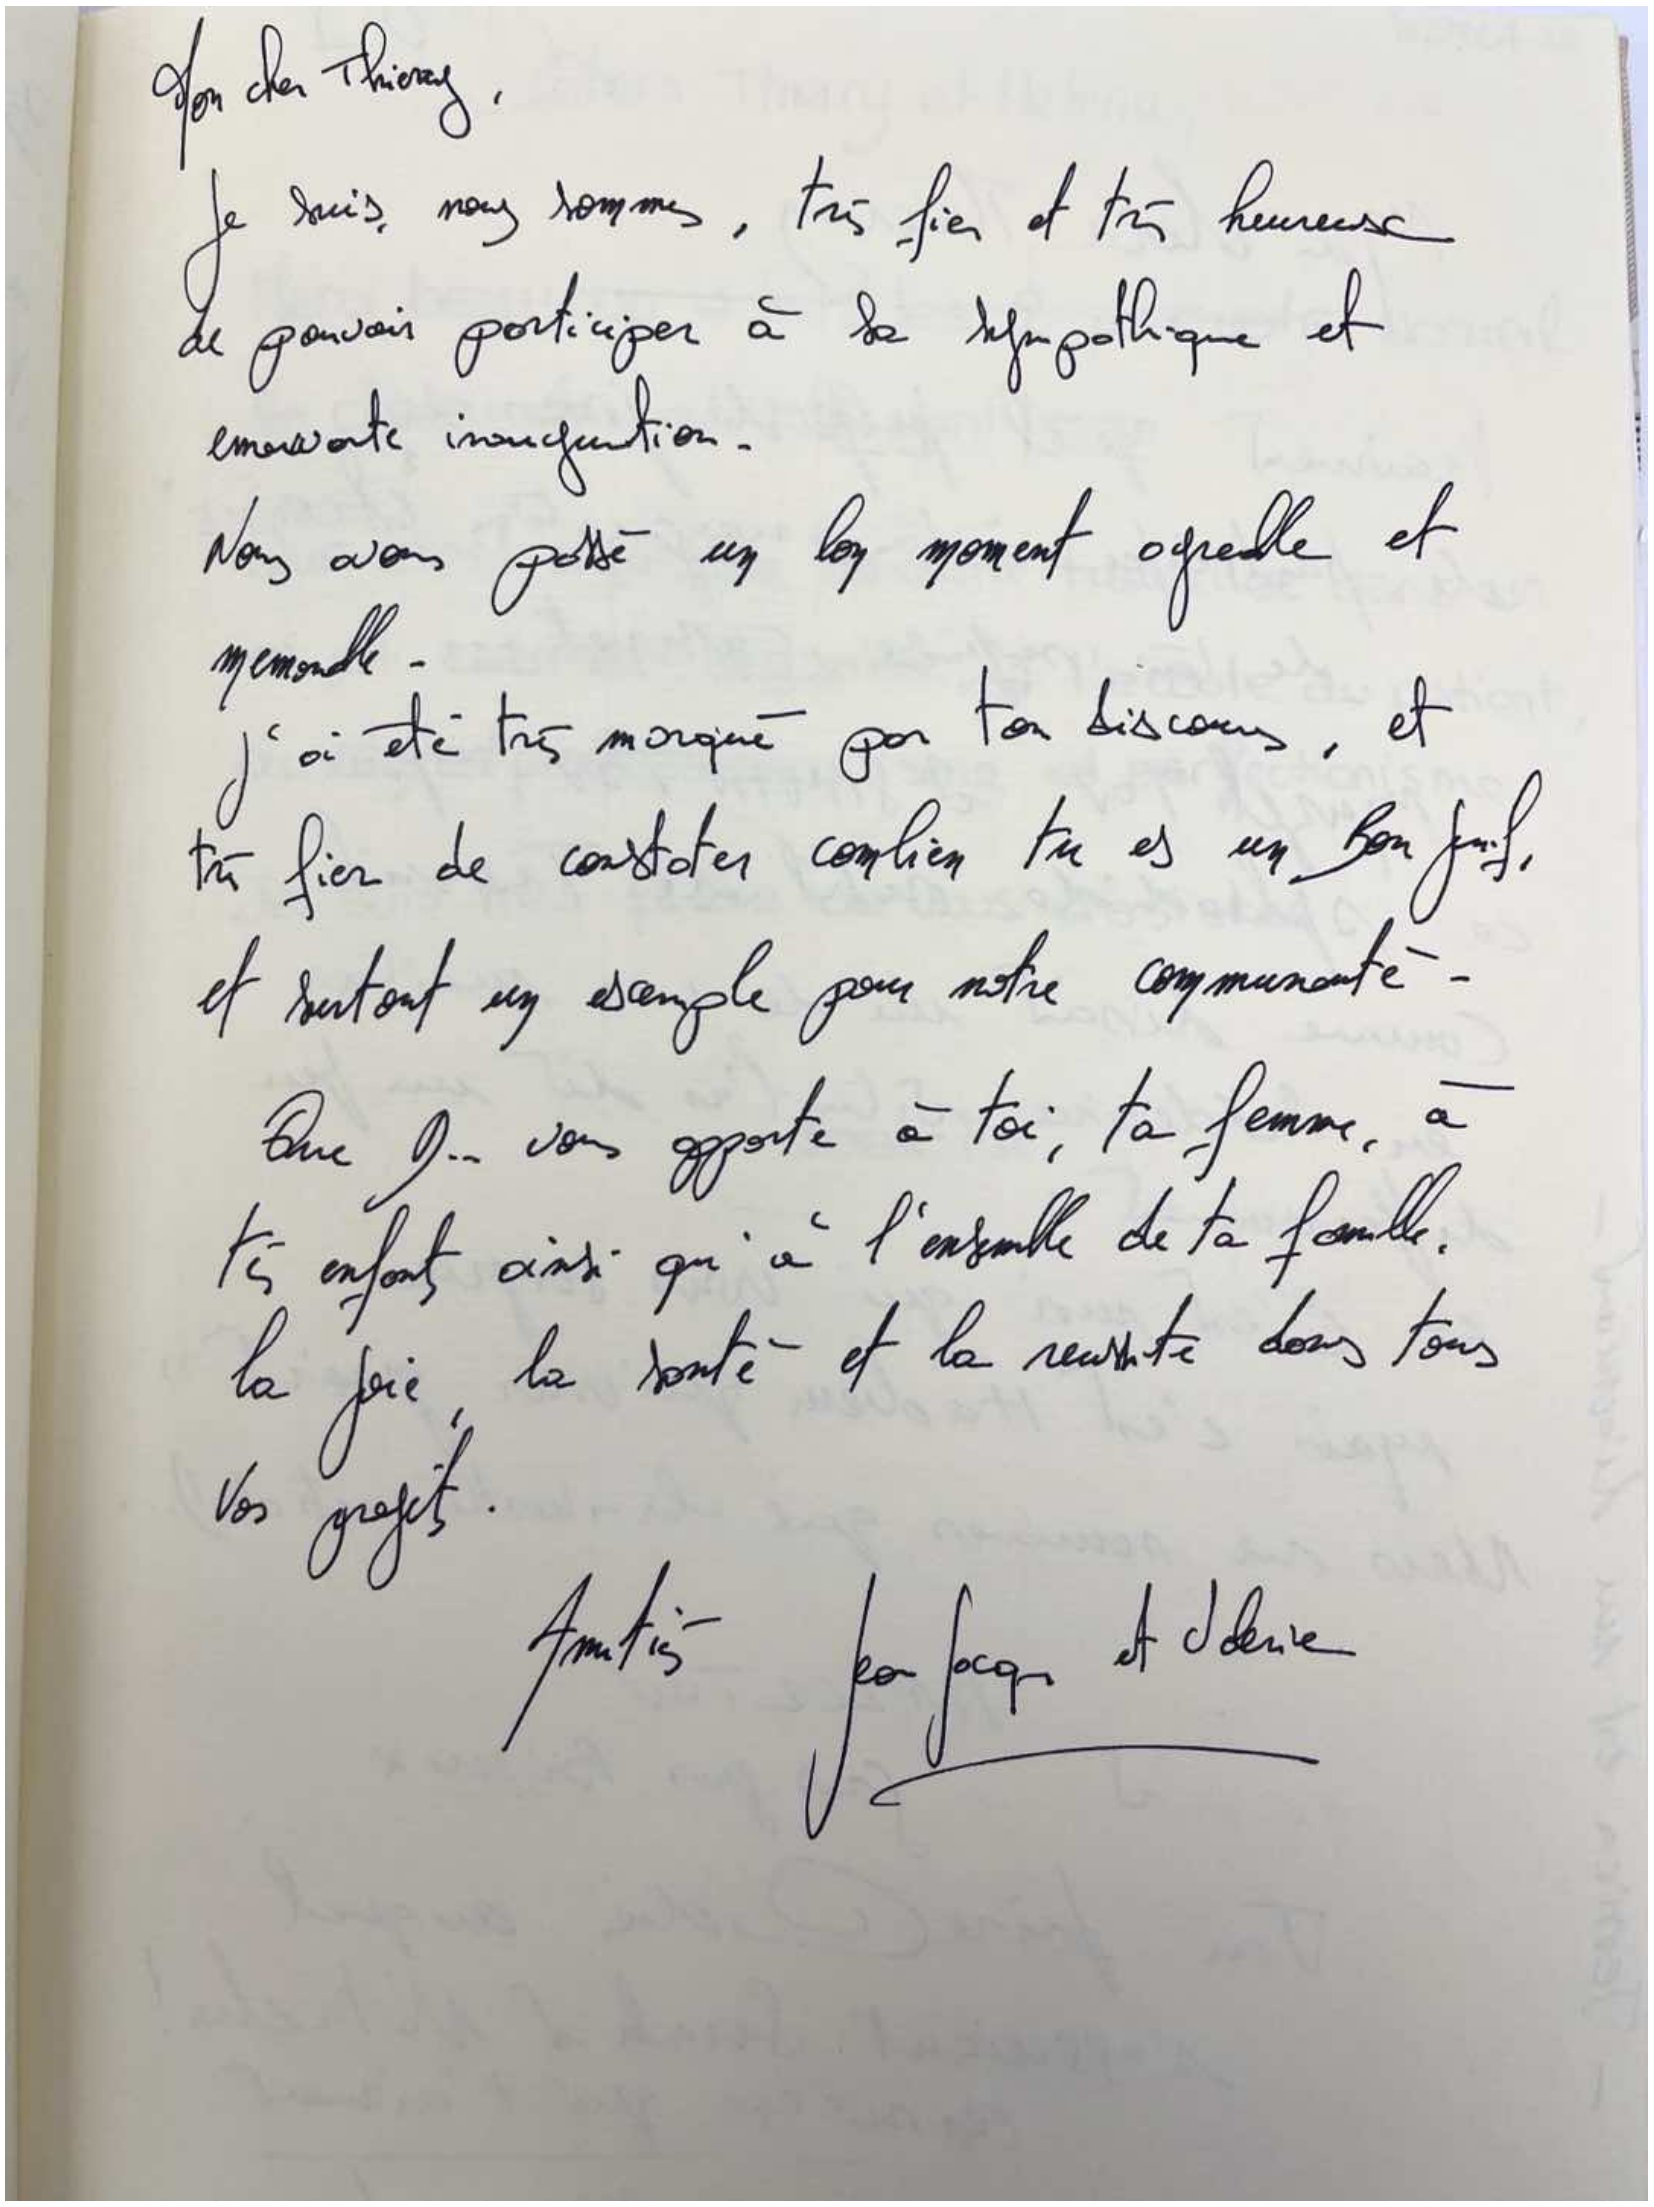 Mon cher Thierry,
Je suis, nous sommes, très fier et très heureuse
de pouvoir participer à sa sympathique et
emouvante inauguration.
Nous avons passé un bon moment agreable et
memorable -
J'ai été très marqué par ton discours, et
très fier de constater combien tu es un Bon Juif,
et surtout un exemple pour notre communauté -
Que D... vous apporte à toi, ta femme, à
tes enfants ainsi qu'à l'ensemble de ta famille.
la joie, la santé et la reussite dans tous
Vos projets.
Amitiés Jean Jacques et Valerie